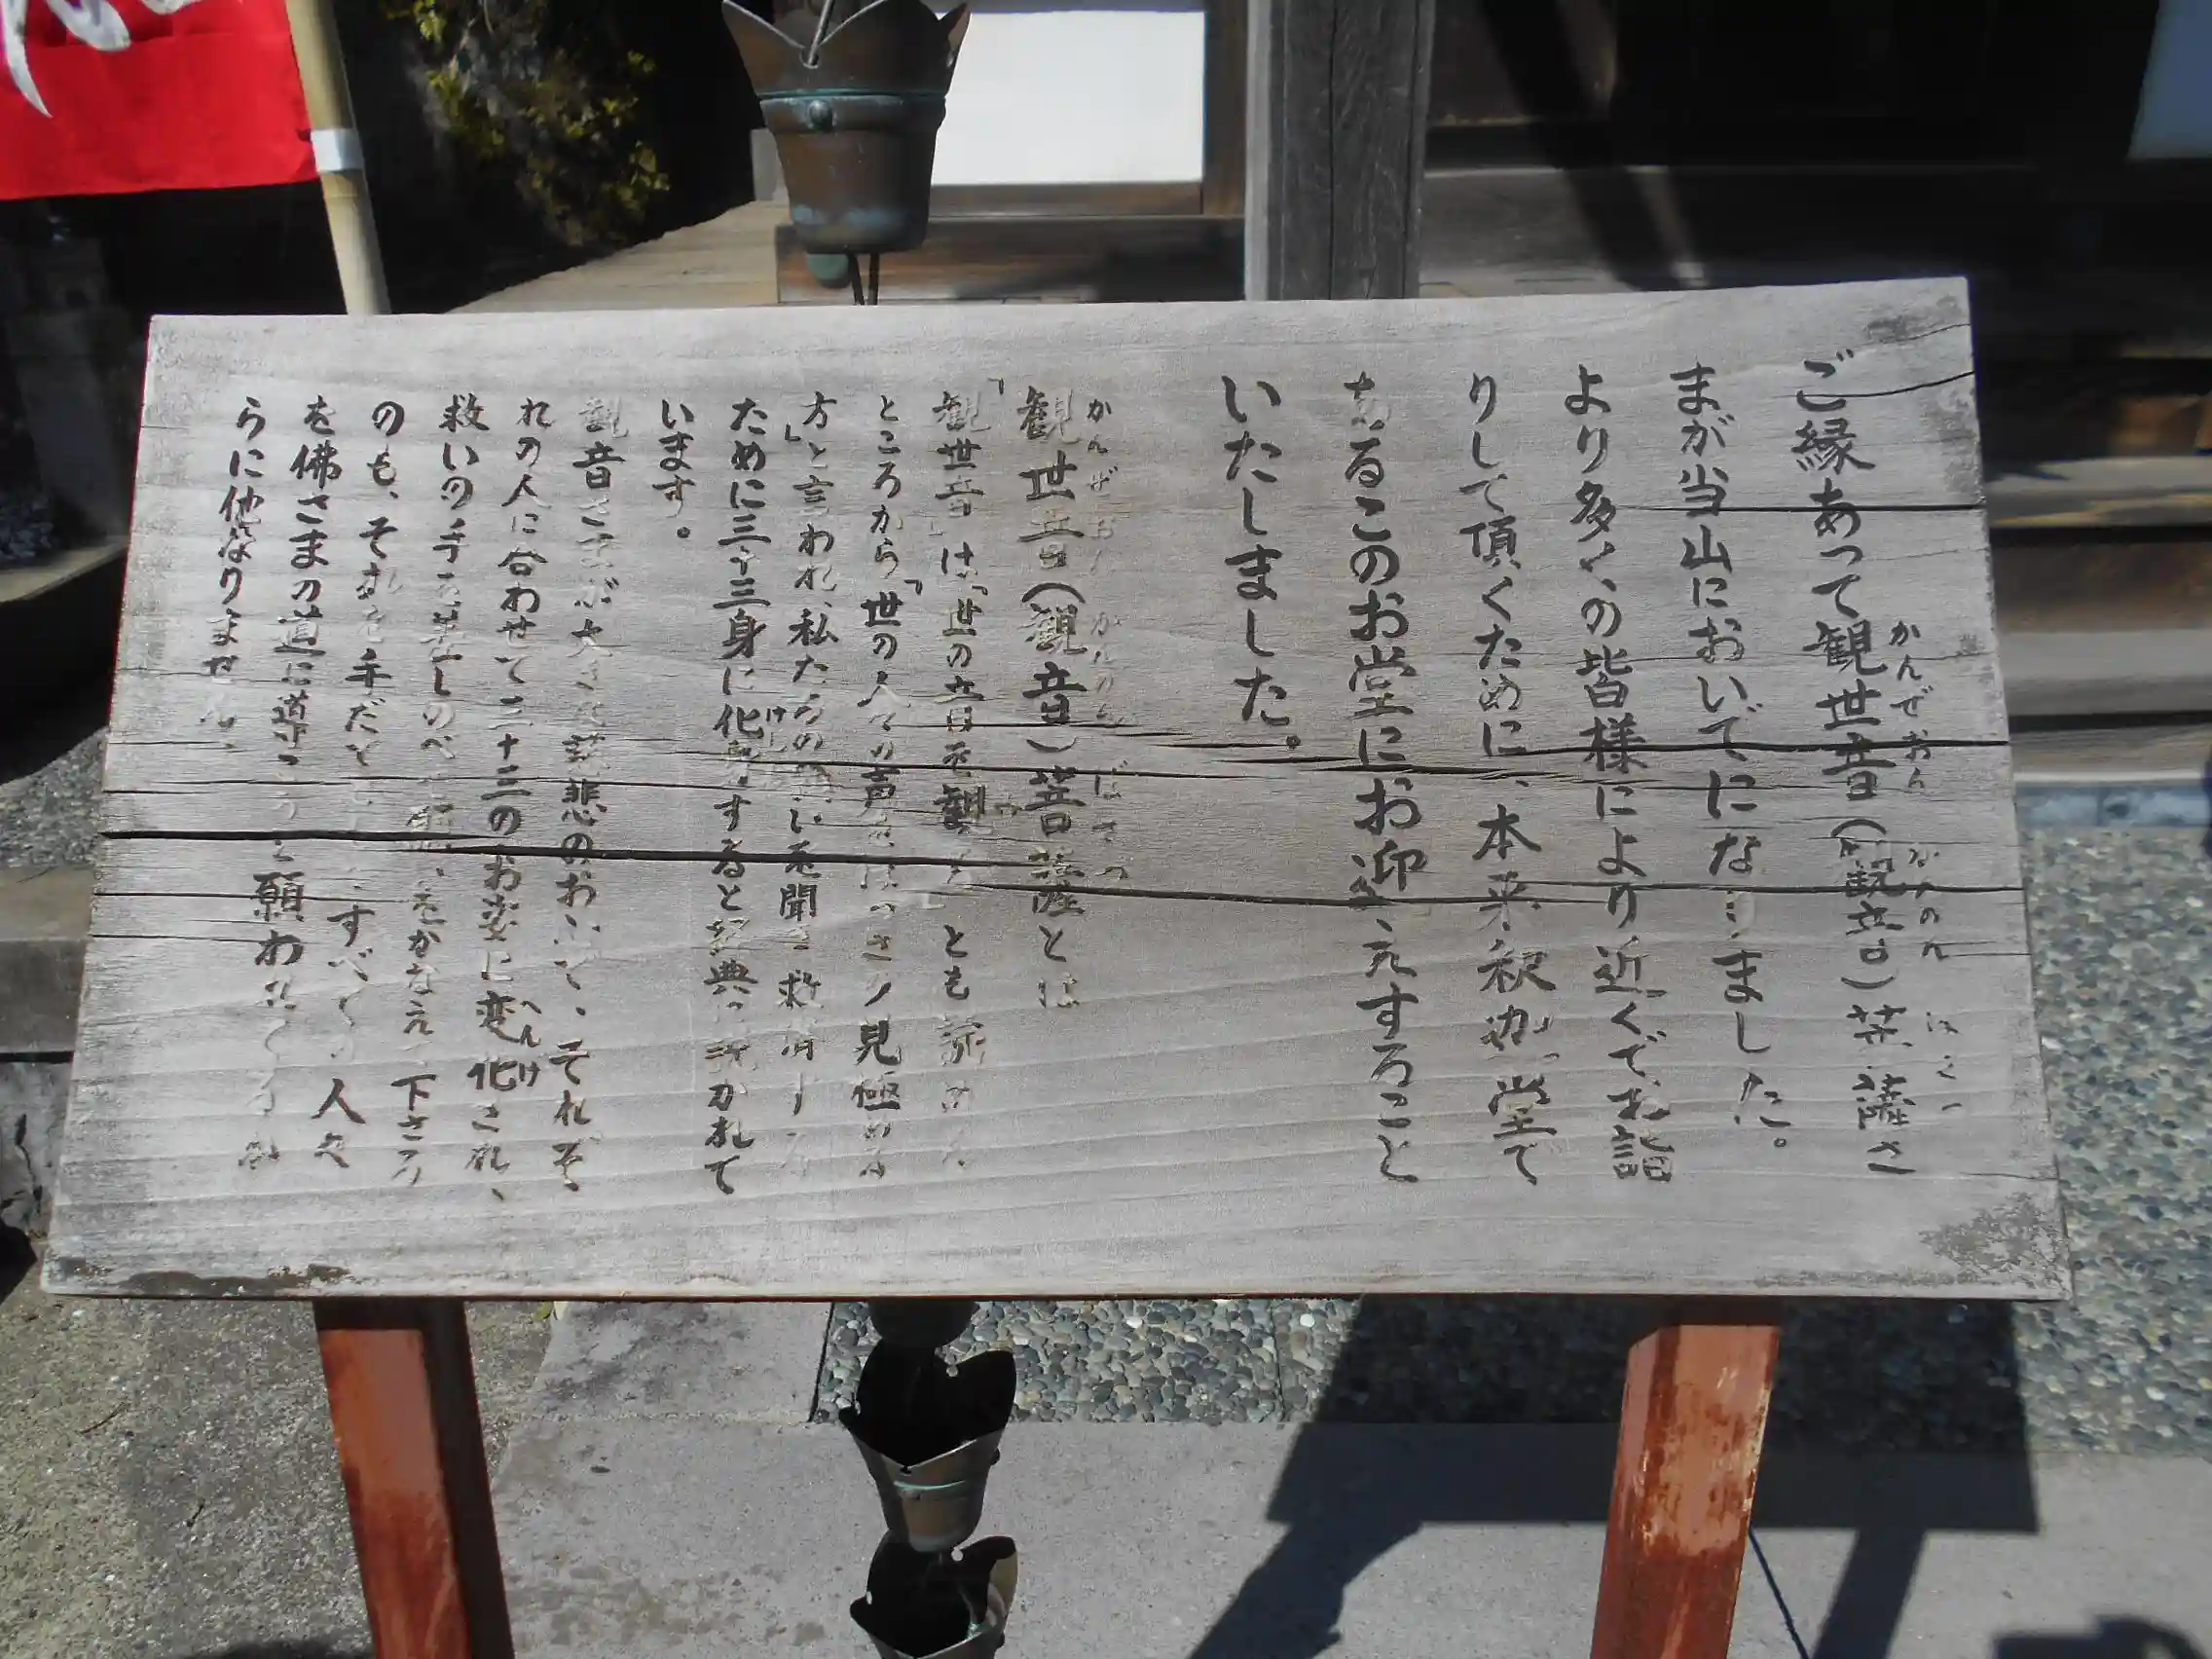 ご縁あって観世音(観音)菩薩さ
まが当山においでになりました。
より多くの皆様により近くでお詣
りして頂くために、本来釈迦堂で
あるこのお堂にお迎え申すること
いたしました。
観世音(観音)菩薩とは
「観世音」は「世の音を観る」とも読め
ところから「世の人々の声をはっきり見極める
方」と言われ、私たちの願いを聞き救済する
ために三十三身に化身すると経典に説かれて
います。
観音さまが大きな慈悲のお心で、それぞ
れの人に合わせて三十三のお姿に変化され、
救いの手を差しのべ お願いをかなえ下さる
のも、それを手だてとし、すべての人々
を佛さまの道に導こうと願われてるか
らに他なりません。